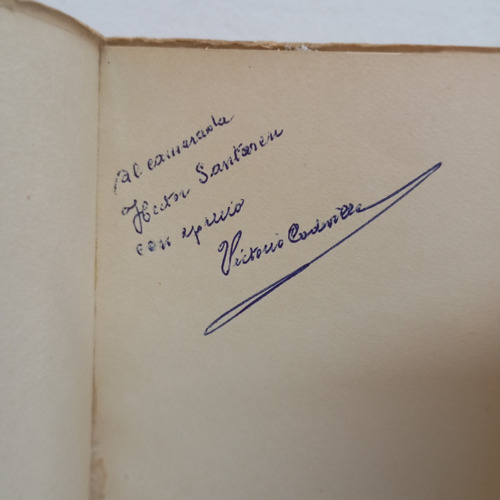 Al camarada
Hector Santaren
con aprecio
Victorio Codovilla